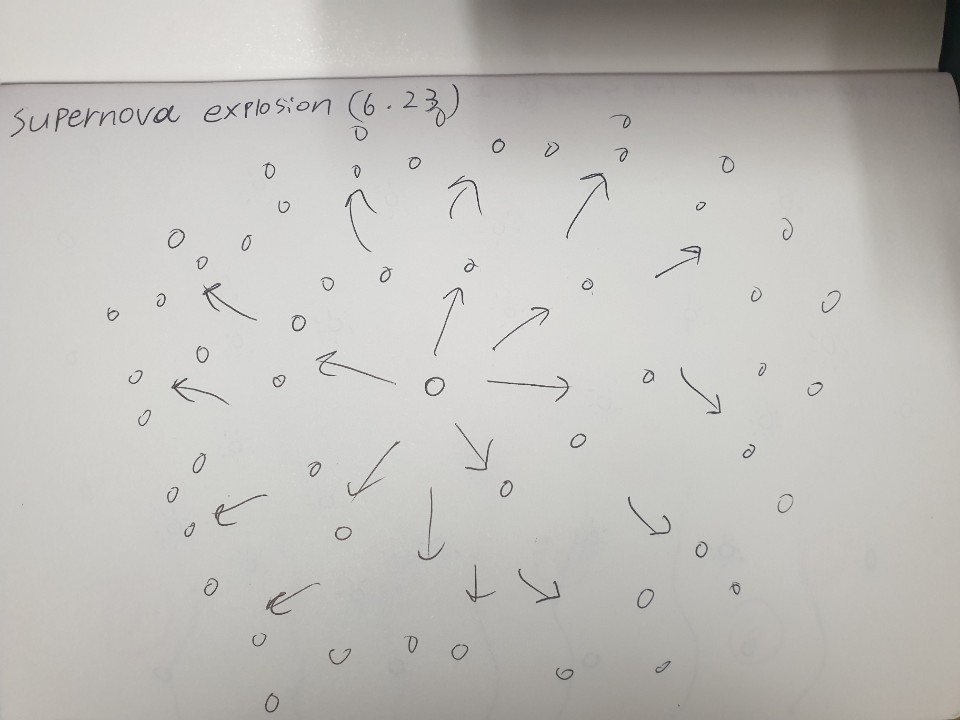 Supernova explosion (6.23)